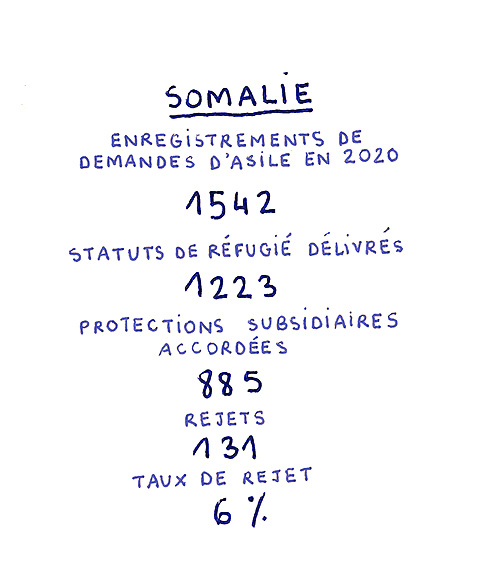 SOMALIE
ENREGISTREMENTS DE
DEMANDES D'ASILE EN 2020
1542
STATUTS DE RÉFUGIÉ DÉLIVRÉS
1223
PROTECTIONS SUBSIDIAIRES
ACCORDÉES
885
REJETS
131
TAUX DE REJET
6 %